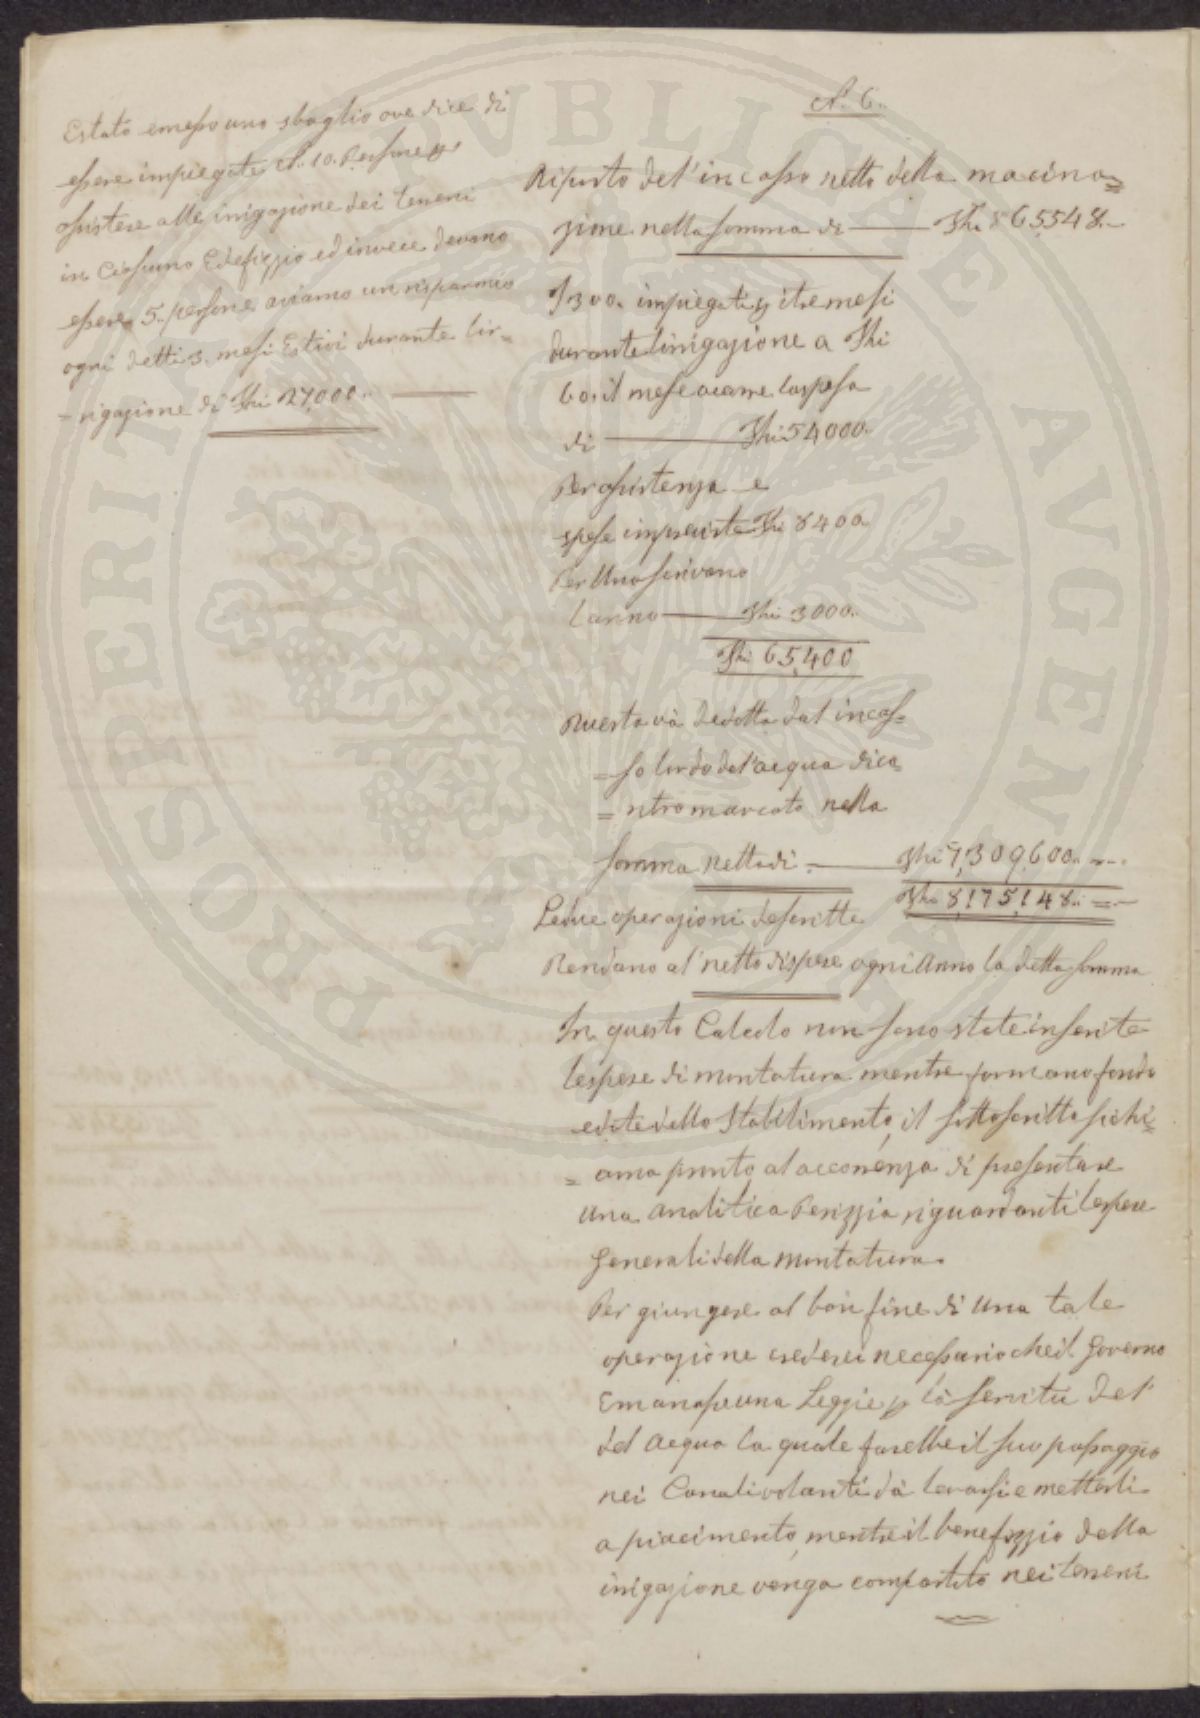 Estato emesso uno sbaglio ove dice di
essere impiegate N. 10. Persone p
assistere alle irrigazione dei terreni
in Ciassuno Edefizzio ed invece devono
essere 5. persone aviamo un risparmio
ogni detti 3. mesi Estivi durante lir=
=rigazione di Fhi 27,000..
N. 6..
Riporto del'incasso netto della macina=
zione nella somma di Fhi 865,548..
P 300. impiegati p i tre mesi
durante linigazione a Fhi
60. il mese acarre laspesa
di Fhi 54000.
Per assistenza e
spese impreviste Fhi 8400
Per Uno scrivano
lanno Fhi 3000..
Fhi 65,400
Questa và dedotta dal incas=
=so lordo del'acqua dico
=ntromarcato nella
somma netta di Fhi 7,309,600..
Fhi 8,175,148..
Ledue operazioni descritte
Rendano al netto dispese ogni Anno la detta somma
In questo Calcolo non sono state inserite
lespese di montatura mentre formano fondo
edote dello Stabilimento, il sottoscritto sichi=
=ama pronto al accorrenza di presentare
una analitica Perizzia riguardanti lespese
Generali della montatura.
Per giungere al bon fine di una tale
operazione crederei necessario che il Governo
Emanasse una Leggie p la servitù del'
del acqua la quale farebbe il suo passaggio
nei Canali volanti dà levarsi e metterli
a piacimento, mentre il benefizzio della
inigazione venga compartito nei terreni
PROSPERITATI PUBLICAE AUGENDAE